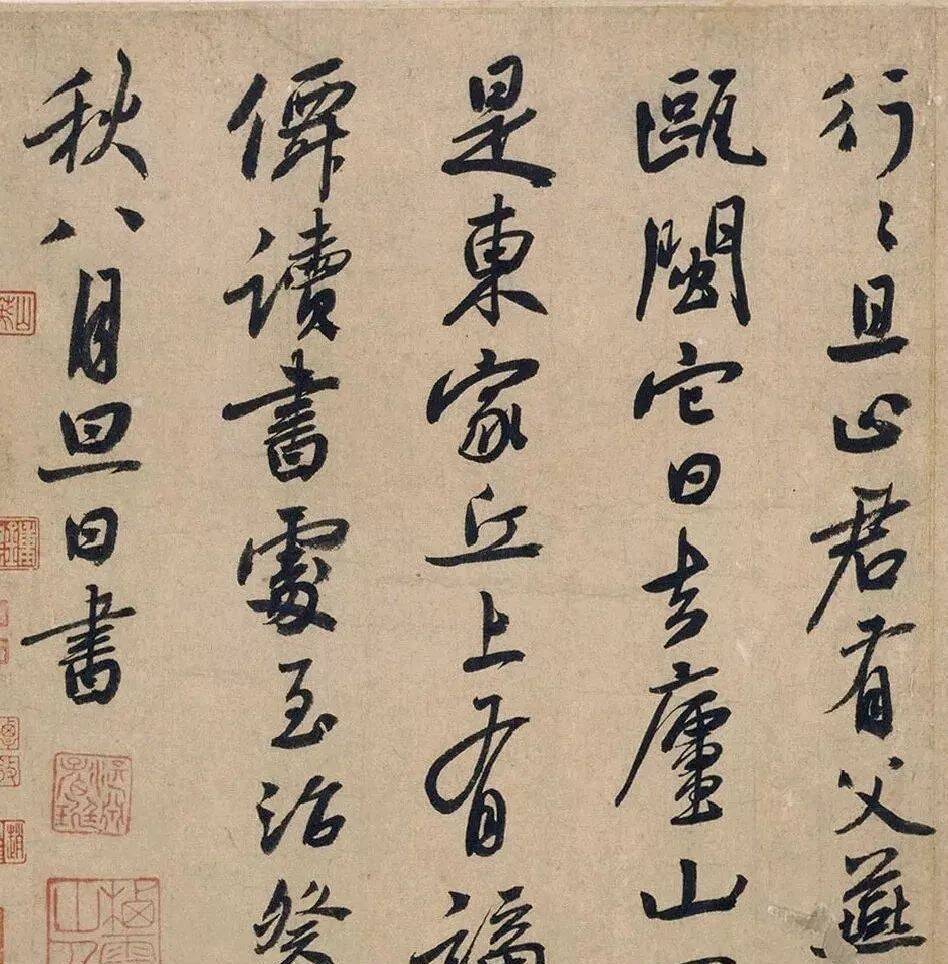 行〻且止君有父燕
甌閩它日去廬山
是東家丘上有謫
僊讀書處至治癸
秋八月旦日書